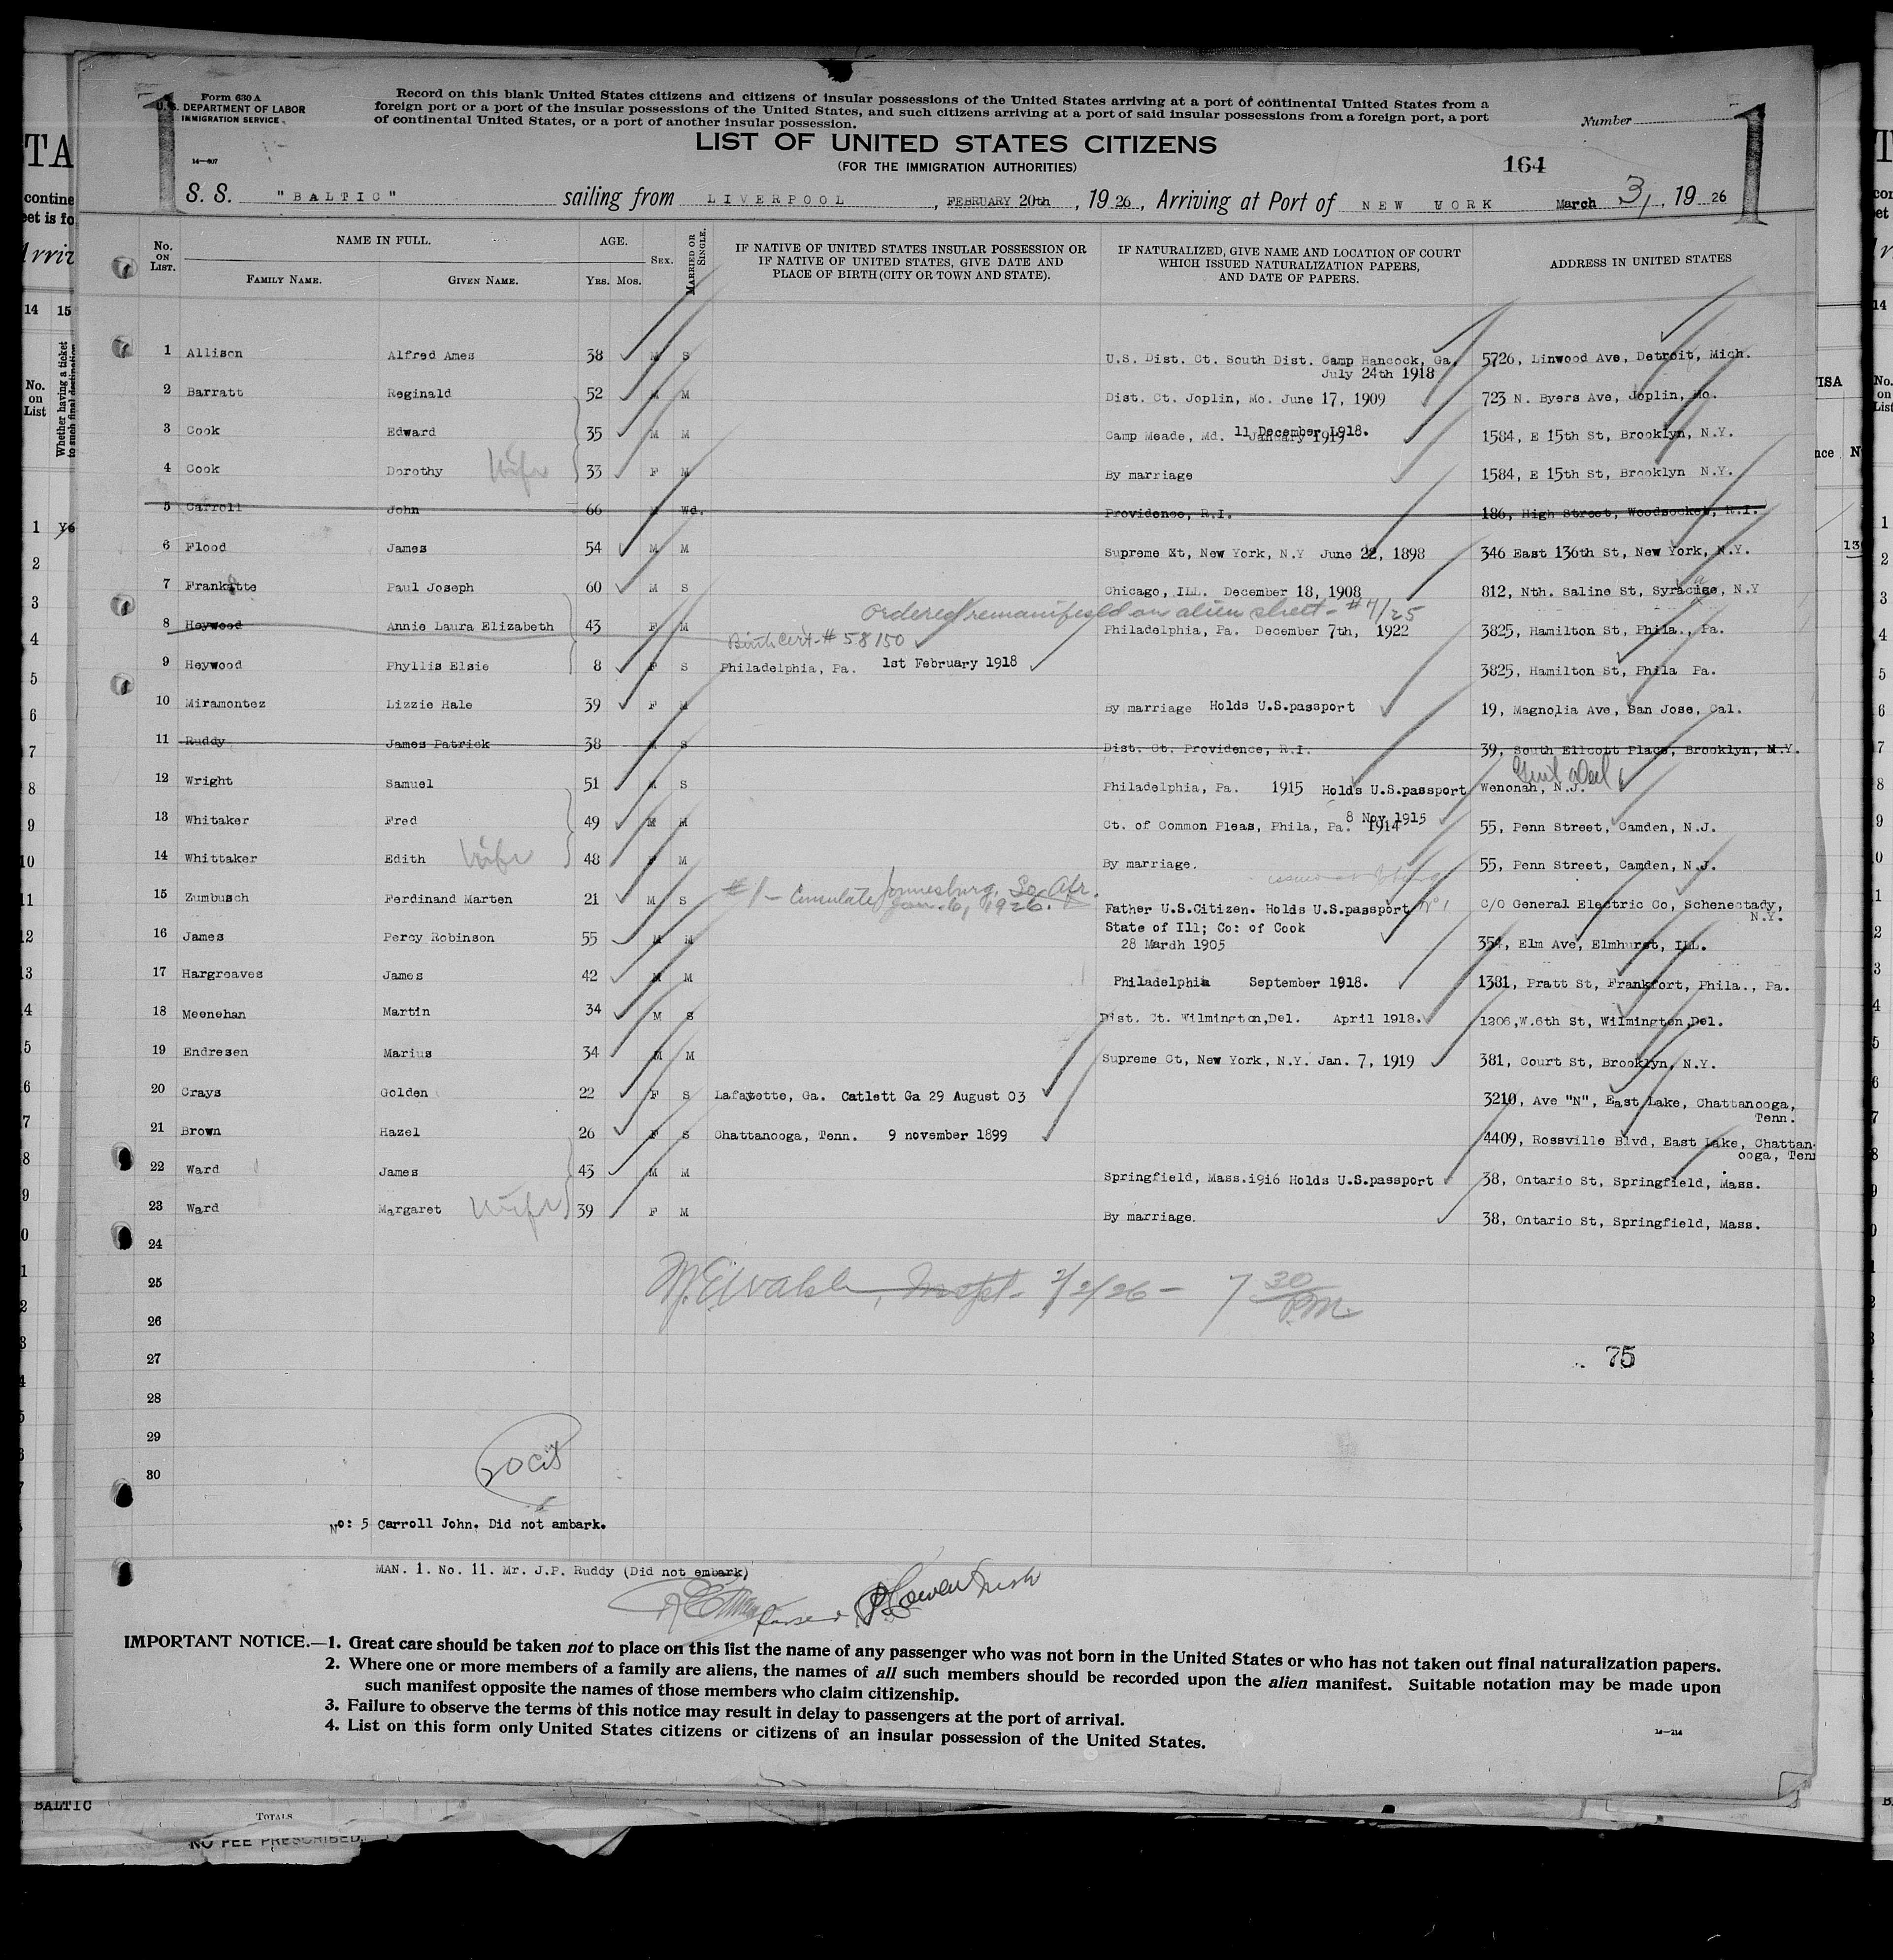 Form 630 A
U.S. DEPARTMENT OF LABOR
IMMIGRATION SERVICE
14—607
1
Record on this blank United States citizens and citizens of insular possessions of the United States arriving at a port of continental United States from a
foreign port or a port of the insular possessions of the United States, and such citizens arriving at a port of said insular possessions from a foreign port, a port
of continental United States, or a port of another insular possession.
Number
1
LIST OF UNITED STATES CITIZENS
(FOR THE IMMIGRATION AUTHORITIES)
164
S. S. "BALTIC" sailing from LIVERPOOL, FEBRUARY 20th, 1926, Arriving at Port of NEW YORK March 3, 1926
No. ON LIST. NAME IN FULL. FAMILY NAME. GIVEN NAME. AGE. YRS. MOS. SEX. MARRIED OR SINGLE. IF NATIVE OF UNITED STATES INSULAR POSSESSION OR IF NATIVE OF UNITED STATES, GIVE DATE AND PLACE OF BIRTH (CITY OR TOWN AND STATE). IF NATURALIZED, GIVE NAME AND LOCATION OF COURT WHICH ISSUED NATURALIZATION PAPERS, AND DATE OF PAPERS. ADDRESS IN UNITED STATES
1 Allison Alfred Ames 38 M S U.S. Dist. Ct. South Dist. Camp Hancock, Ga. 5726, Linwood Ave, Detroit, Mich.
July 24th 1918
2 Barratt Reginald 52 M M Dist. Ct. Joplin, Mo. June 17, 1909 723 N. Byers Ave, Joplin, Mo.
3 Cook Edward 35 M M Camp Meade, Md. January 1919 11 December 1918. 1584, E 15th St, Brooklyn, N.Y.
4 Cook Dorothy Wife 33 F M By marriage 1584, E 15th St, Brooklyn N.Y.
5 Carroll John 66 M Wd. Providence, R.I. 186, High Street, Woodsocket, R.I.
6 Flood James 54 M M Supreme Xt, New York, N.Y June 22, 1898 346 East 136th St, New York, N.Y.
7 Frankatte Paul Joseph 60 M S Chicago, ILL. December 18, 1908 812, Nth. Saline St, Syracuse, N.Y
Ordered remanifested on alien sheet - #7/25
8 Heywood Annie Laura Elizabeth 43 F M Philadelphia, Pa. December 7th, 1922 3825, Hamilton St, Phila., Pa.
Birth Cert - # 58150
9 Heywood Phyllis Elsie 8 F S Philadelphia, Pa. 1st February 1918 3825, Hamilton St, Phila Pa.
10 Miramontez Lizzie Hale 39 F M By marriage Holds U.S.passport 19, Magnolia Ave, San Jose, Cal.
11 Ruddy James Patrick 38 M S Dist. Ct. Providence, R.I. 39, South Ellcott Place, Brooklyn, N.Y.
12 Wright Samuel 51 M S Philadelphia, Pa. 1915 Holds U.S.passport Wenonah, N.J.
13 Whitaker Fred 49 M M Ct. of Common Pleas, Phila, Pa. 1914 8 Nov 1915 55, Penn Street, Camden, N.J.
14 Whittaker Edith Wife 48 F M By marriage. 55, Penn Street, Camden, N.J.
15 Zumbusch Ferdinand Marten 21 M S #1 - Consulate Jonnesburg, So. Afr. Jan. 6, 1926. Father U.S.Citizen. Holds U.S.passport No 1 C/O General Electric Co, Schenectady,
N.Y.
16 James Percy Robinson 55 M M State of Ill; Co: of Cook
28 Mardh 1905 354, Elm Ave, Elmhurst, ILL.
17 Hargreaves James 42 M M Philadelphia September 1918. 1381, Pratt St, Frankfort, Phila., Pa.
18 Meenehan Martin 34 M S Dist. Ct. Wilmington,Del. April 1918. 1206,W.6th St, Wilmington,Del.
19 Endresen Marius 34 M M Supreme Ct, New York, N.Y. Jan. 7, 1919 381, Court St, Brooklyn, N.Y.
20 Crays Golden 22 F S Lafayette, Ga. Catlett Ga 29 August 03 3210, Ave "N", East Lake, Chattanooga,
Tenn.
21 Brown Hazel 26 F S Chattanooga, Tenn. 9 november 1899 4409, Rossville Blvd, East Lake, Chattan
ooga, Ten
22 Ward James 43 M M Springfield, Mass.1916 Holds U.S.passport 38, Ontario St, Springfield, Mass.
23 Ward Margaret Wife 39 F M By marriage. 38, Ontario St, Springfield, Mass.
24
25
7 30 PM.
26
27 75
28
29
20 cit
30
No: 5 Carroll John. Did not ambark.
MAN. 1. No. 11. Mr. J.P. Ruddy (Did not embark)
IMPORTANT NOTICE.—1. Great care should be taken not to place on this list the name of any passenger who was not born in the United States or who has not taken out final naturalization papers.
2. Where one or more members of a family are aliens, the names of all such members should be recorded upon the alien manifest. Suitable notation may be made upon
such manifest opposite the names of those members who claim citizenship.
3. Failure to observe the terms of this notice may result in delay to passengers at the port of arrival.
4. List on this form only United States citizens or citizens of an insular possession of the United States.
14—214
BALTIC
TOTALS
NO FEE PRESCRIBED.